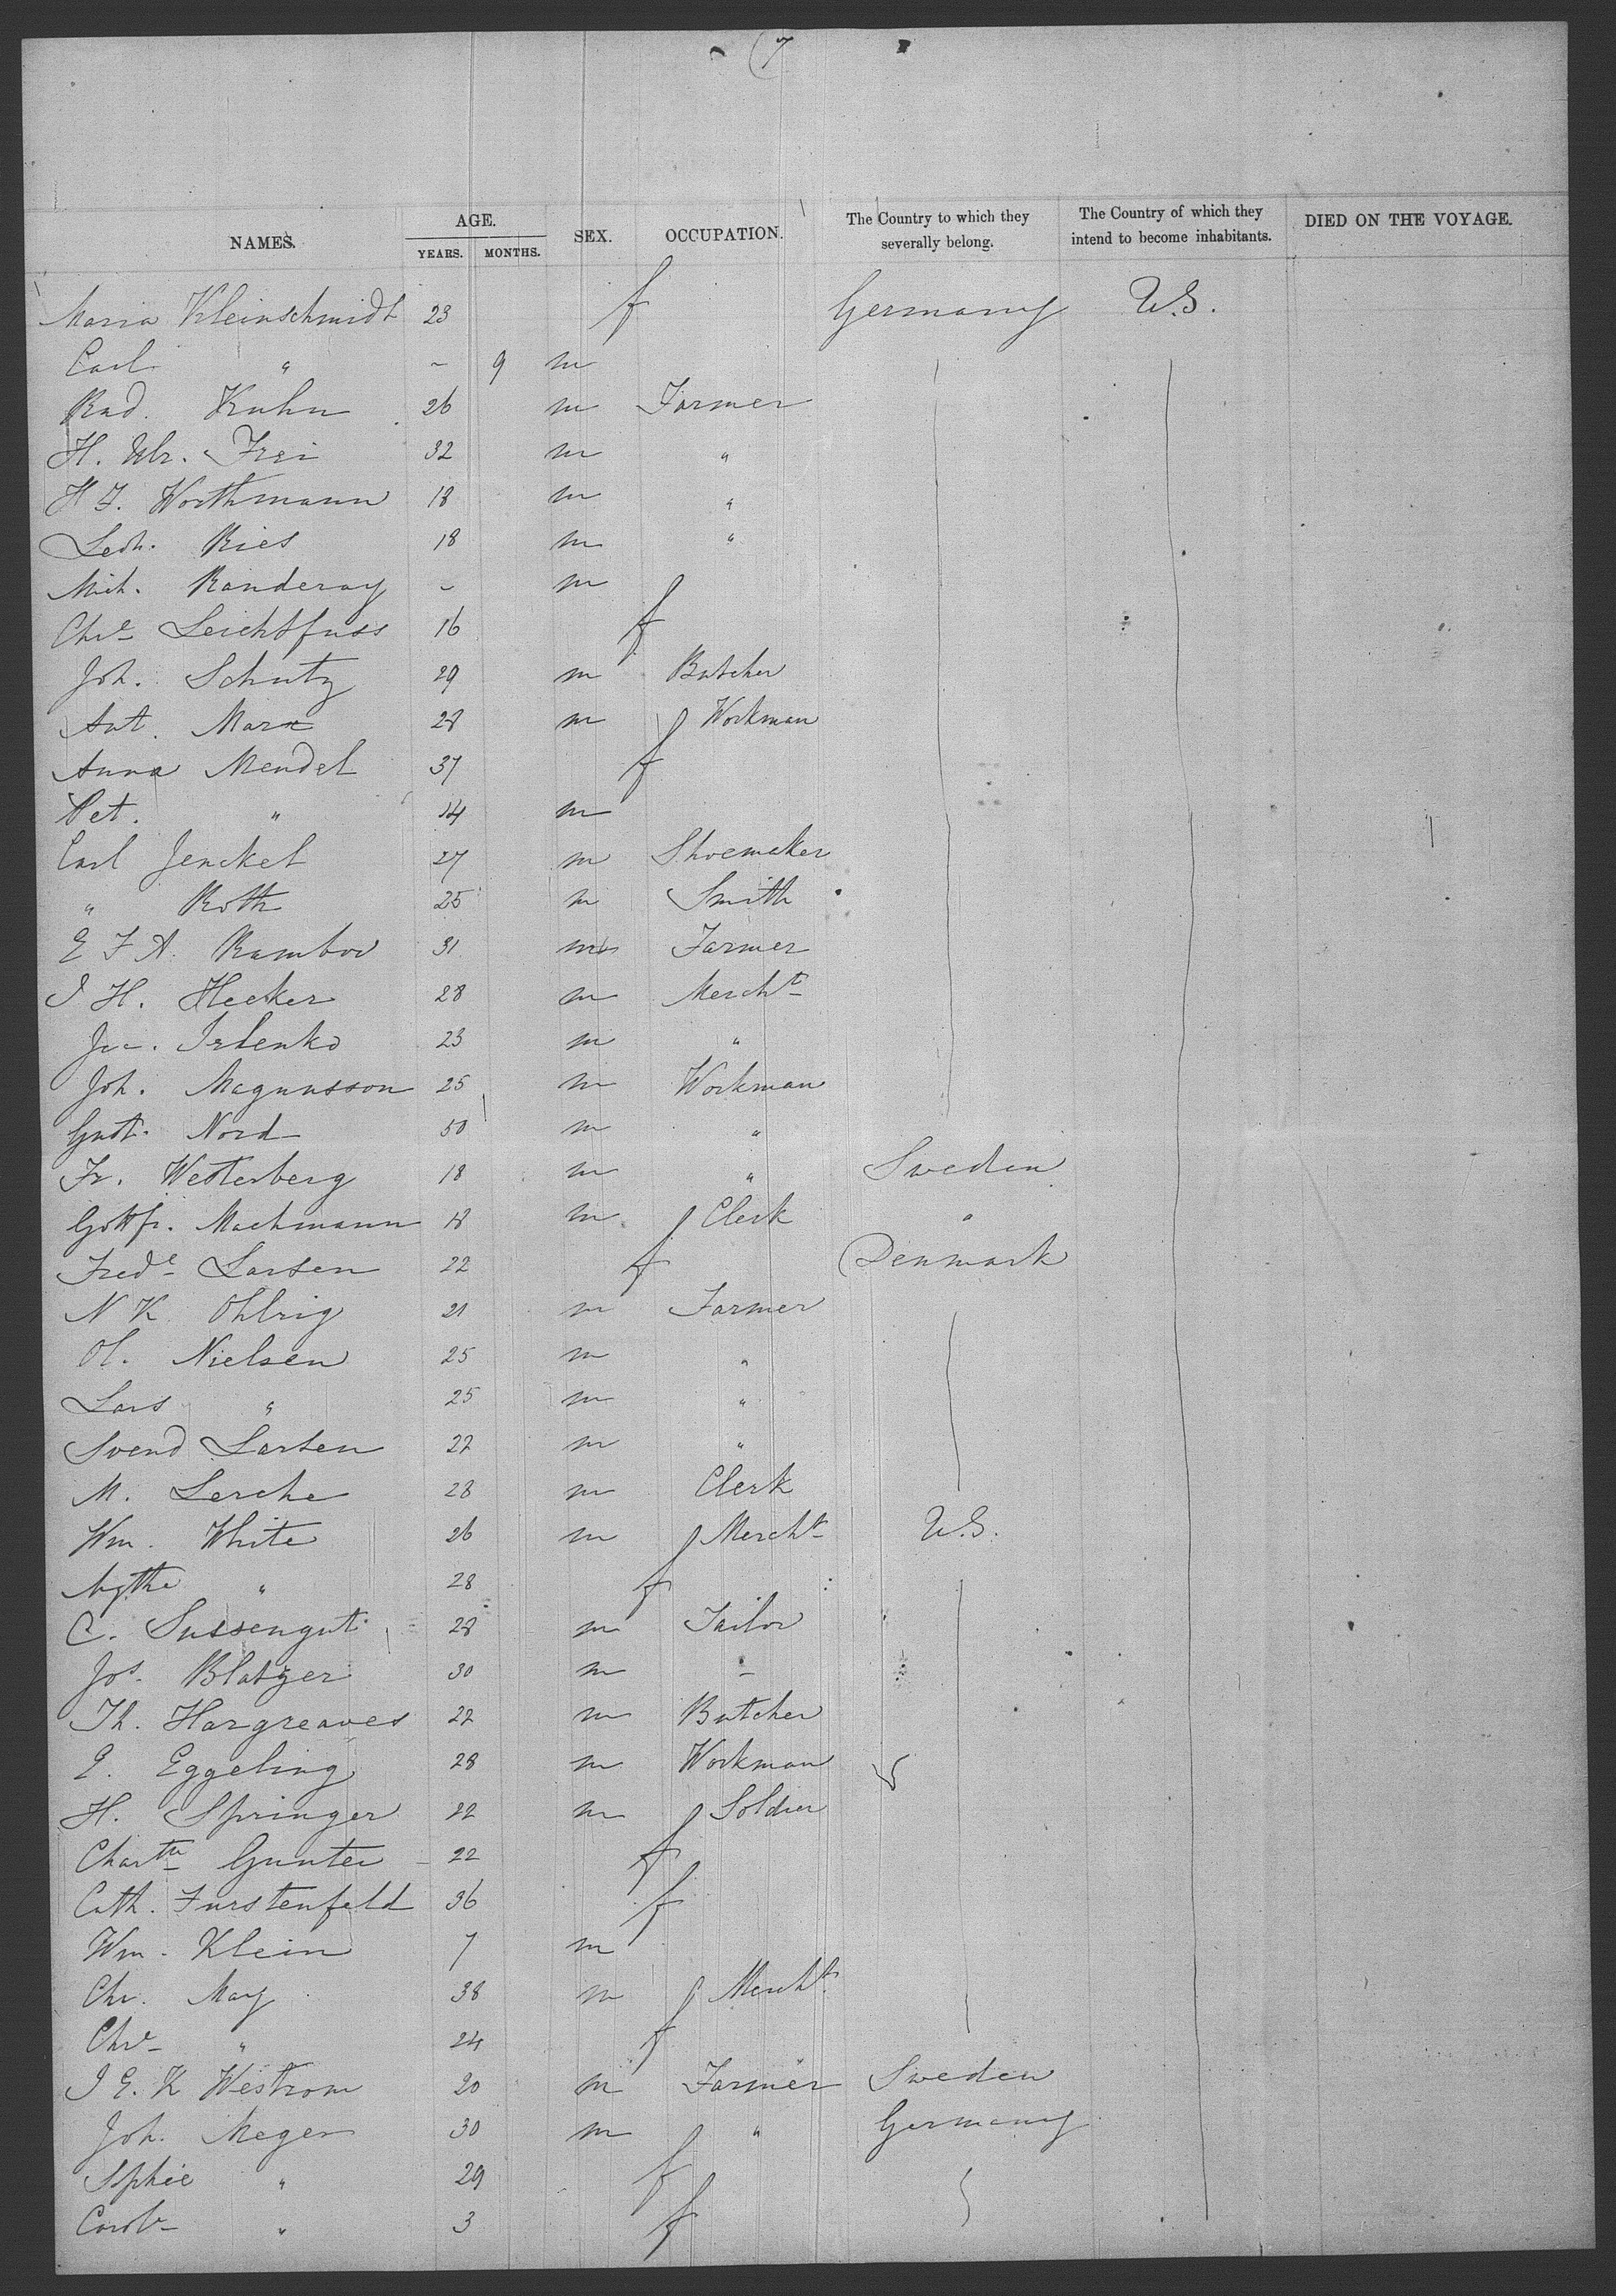 (7
NAMES. AGE. YEARS. MONTHS. SEX. OCCUPATION. The Country to which they severally belong. The Country of which they intend to become inhabitants. DIED ON THE VOYAGE.
Maria Kleinschmidt 23 f Germany U.S.
Carl " - 9 m
Rud. Kuhn 26 m Farmer
H. Ulr. Frei 32 m "
H F. Worthmann 18 m "
Leoh. Ries 18 m "
Mich. Randeray - m
Chre Leichtfuss 16 f
Joh. Schutz 29 m Butcher
Ant. Marx 28 m Workman
Anna Mendel 37 f
Pet. " 14 m
Carl Jenckel 27 m Shoemaker
" Roth 25 m Smith
E F A. Rambow 31 m Farmer
J H. Hecker 28 m Mercht
Irlenko 23 m "
Joh. Magnusson 25 m Workman
Gust. Nord 50 m "
Fr. Westerberg 18 m " Sweden
Gottfr. Machmann 18 m Clerk "
Frede Larsen 22 f Denmark
N K Ohlrig 21 m Farmer
Ol. Nielsen 25 m "
Lars " 25 m "
Svend Larsen 22 m "
M. Lerche 28 m Clerk
Wm. White 26 m Mercht U.S.
Agthe " 28 f
C. Sussengut 28 m Tailor
Jos. Blatzer 30 m -
Th. Hargreaves 22 m Butcher
E. Eggeling 28 m Workman
H. Springer 22 m Soldier
Chartte Gunter 22 f
Cath. Furstenfeld 36 f
Wm. Klein 7 m
Chr. May 38 m Mercht
Chre " 24 f
J E. K Westrom 20 m Farmer Sweden
Joh. Meyer 30 m " Germany
Sophie " 29 f
Carole " 3 f